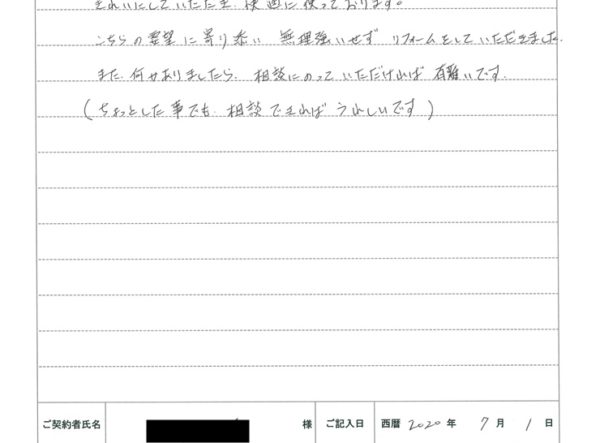 きれいにしていただき、快適に使っております。
こちらの要望に寄り添い 無理強いせず リフォームをしていただきました。
また、何かありましたら、相談にのっていただければ 有難いです。
(ちょっとした事でも、相談できればうれしいです)
ご契約者氏名 様 ご記入日 西暦 2020 年 7 月 1 日